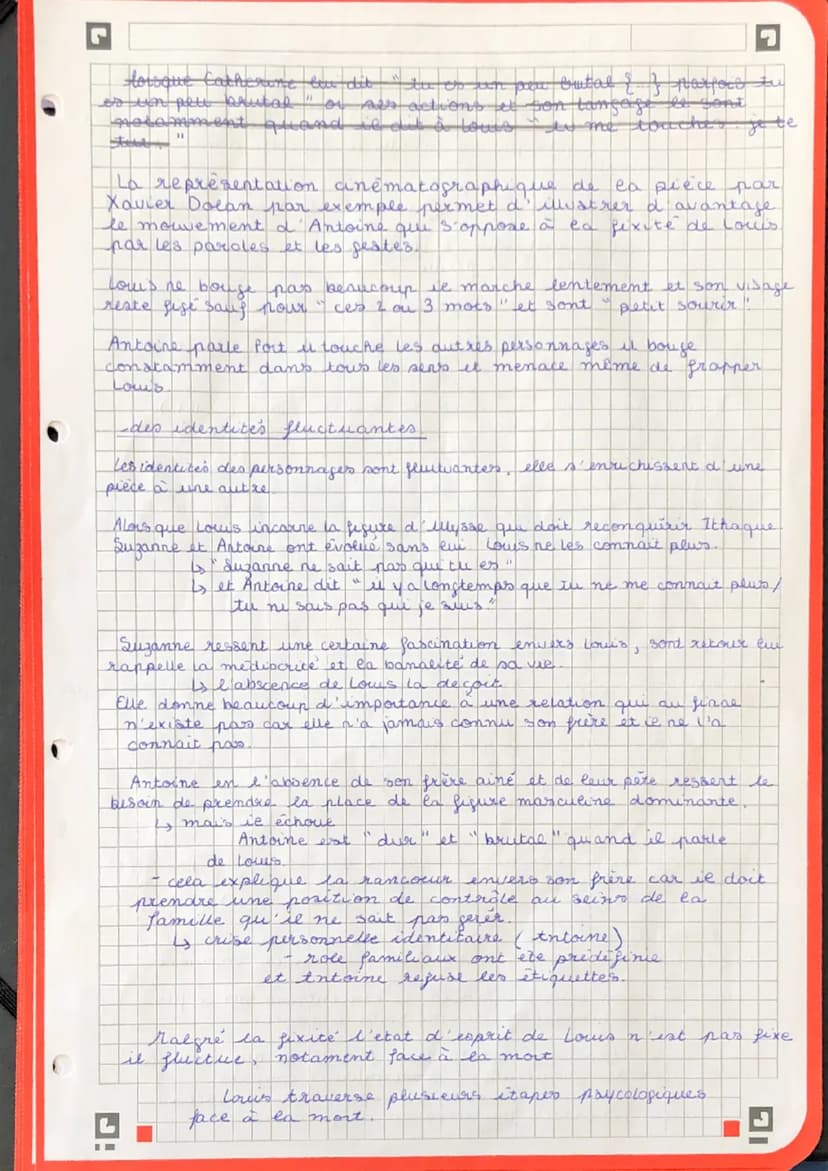 lorsque Catherine lui dit "tu es un peu brutal { } parfois tu
es un peu brutal" ou ses actions et son langage le sont
notamment quand il dit à Louis "tu me touches : je te
tue."
La représentation cinématographique de la pièce par
Xavier Dolan par exemple permet d'illustrer d'avantage
le mouvement d'Antoine qui s'oppose à la fixité de Louis
par les paroles et les gestes.
Louis ne bouge pas beaucoup il marche lentement et son visage
reste figé sauf pour "ces 2 ou 3 mots" et sont "petit sourir".
Antoine parle fort il touche les autres personnages il bouge
constamment dans tous les sens et menace même de frapper
Louis.
-des identités fluctuantes
Les identités des personnages sont fluctuantes, elle s'enrichissent d'une
pièce à une autre.
Alors que Louis incarne la figure d'Ulysse qui doit reconquirir Ithaque
Suzanne et Antoine ont évolué sans lui. Louis ne les connait plus.
↳ "Suzanne ne sait pas qui tu es"
↳ et Antoine dit "il y a longtemps que tu ne me connait plus/
tu ne sais pas qui je suis"
Suzanne ressent une certaine fascination envers Louis, sont retour lui
rappelle la médiocrité et la banalité de sa vie.
↳ l'abscence de Louis la deçoit.
Elle donne beaucoup d'importance à une relation qui au finae
n'existe pas car elle n'a jamais connu son frère et il ne l'a
connait pas.
Antoine en l'absence de son frère ainé et de leur père ressent le
besoin de prendre la place de la figure masculine dominante.
↳ mais il échoue
Antoine est "dur" et "brutal" quand il parle
de Louis.
- cela explique la rancœur envers son frère car il doit
prendre une position de contrôle au seins de la
famille qu'il ne sait pas gerér.
↳ crise personnelle identitaire (Antoine)
- role familiaux ont été prédéfinie
et Antoine refuse les étiquettes.
Malgré la fixité l'état d'esprit de Louis n'est pas fixe
il fluctue, notament face à la mort
Louis traverse plusieurs étapes psycologiques
face à la mort.